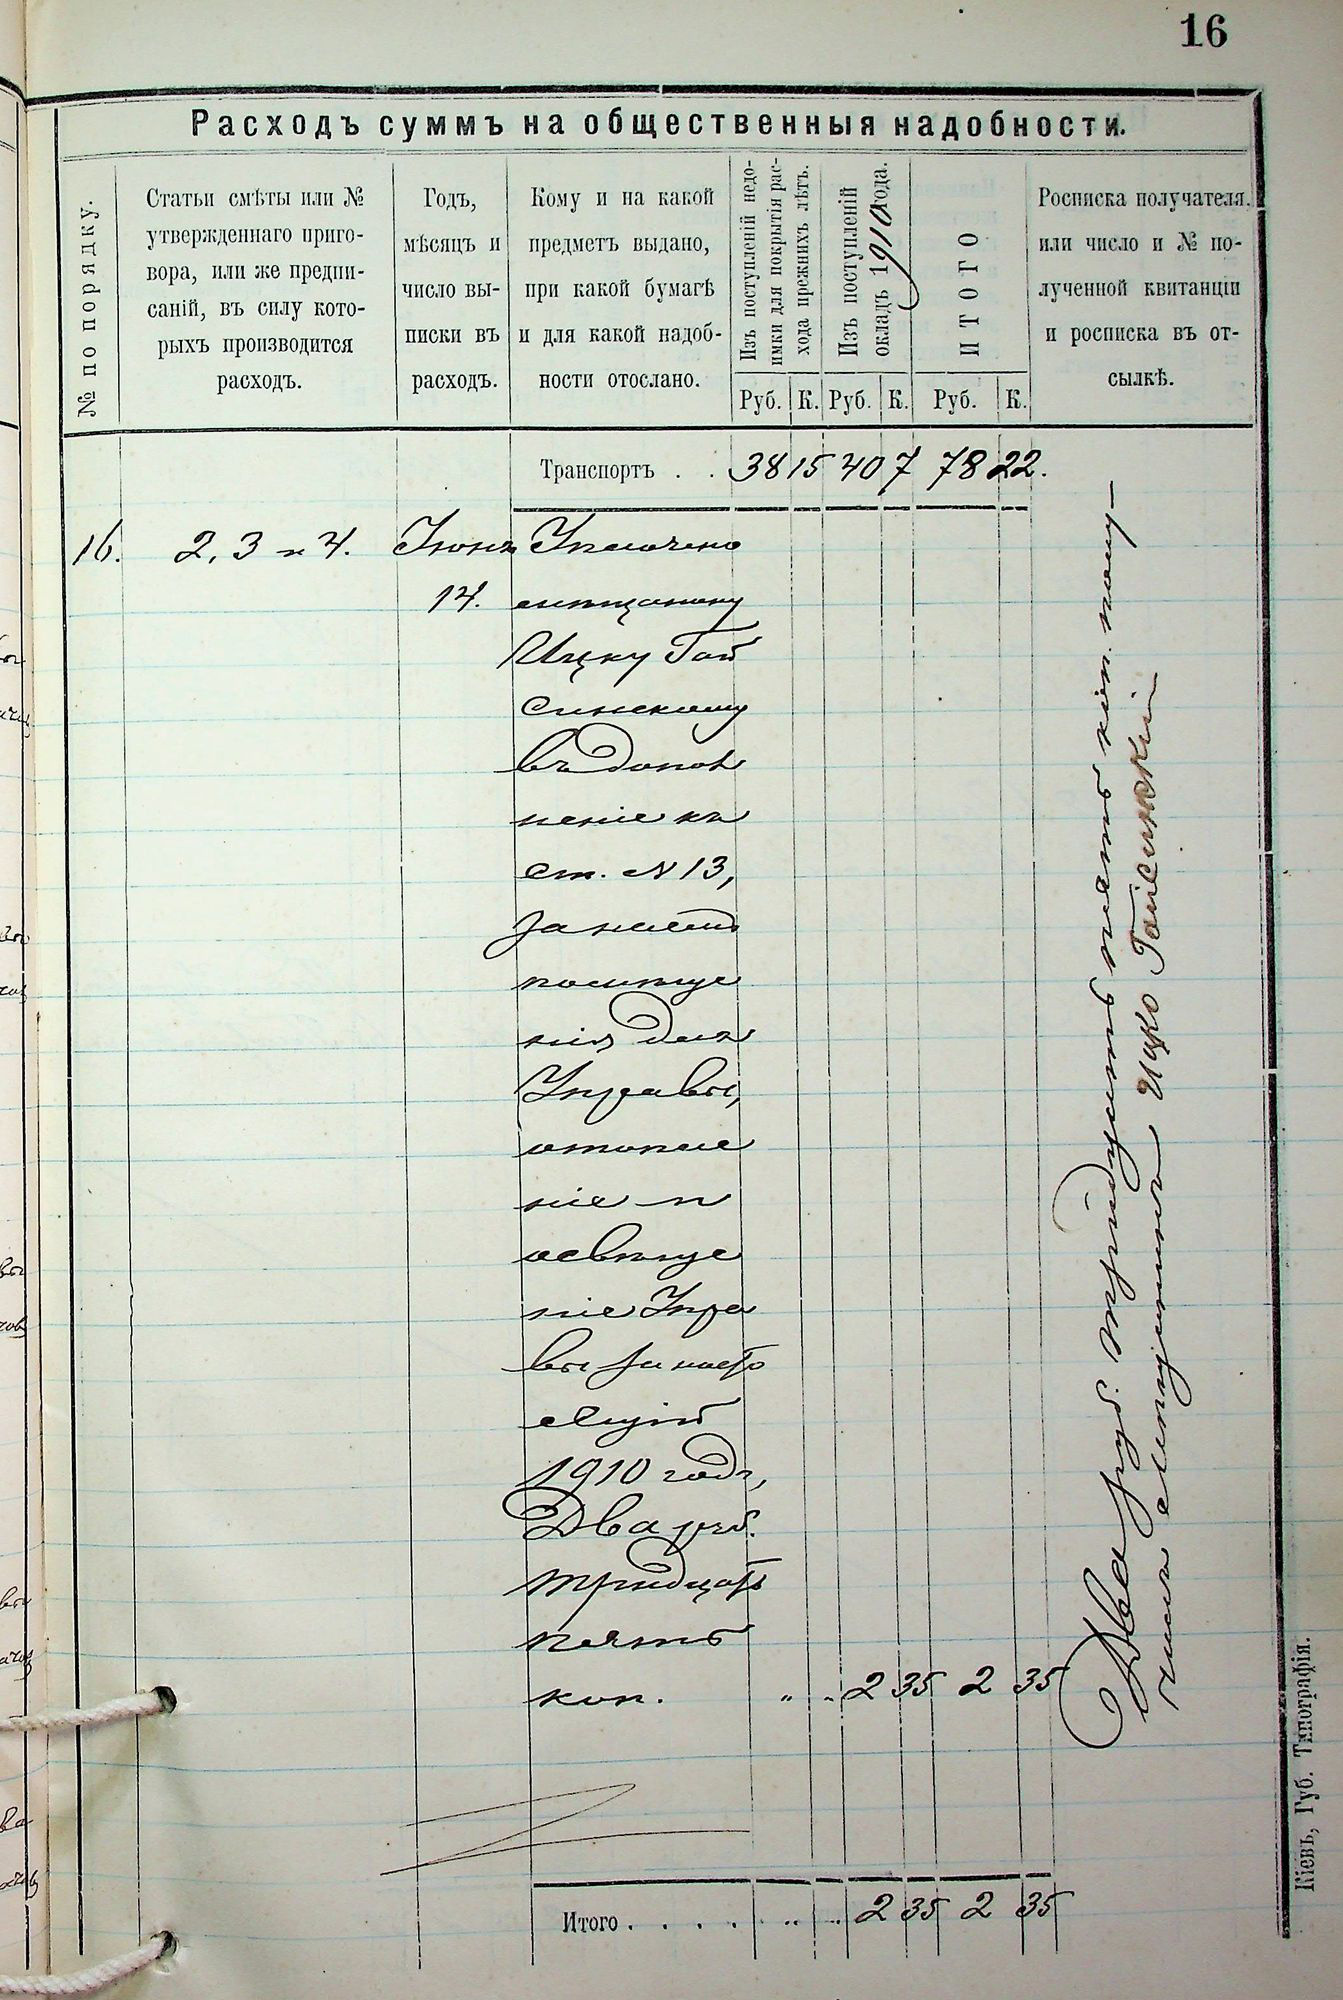 16
Расходъ суммъ на общественныя надобности.
№ по порядку.
Статьи смѣты или №
утвержденнаго приго-
вора, или же предпи-
саній, въ силу кото-
рыхъ производится
расходъ.
Годъ,
мѣсяцъ и
число вы-
писки въ
расходъ.
Кому и на какой
предметъ выдано,
при какой бумагѣ
и для какой надоб-
ности отослано.
Изъ поступленій недо-
имки для покрытія рас-
хода прежнихъ лѣтъ.
Изъ поступленій
окладъ 1910 года.
ИТОГО
Руб. К. Руб. К. Руб. К.
Росписка получателя,
или число и № по-
лученной квитанціи
и росписка въ от-
сылкѣ.
Транспортъ . . 38 15 40 7 78 22.
16. 2, 3 и 4. Іюня Уплочено
14. мѣщанину
Ицку Гай
синскому
въ допол
неніе къ
ст. № 13,
за наемъ
помѣще
нія для
Управы,
отопле
ніе и
освѣще
ніе Упра
вы за насто
ящій
1910 годъ,
Два руб.
тридцать
пять
коп. " " 2 35 2 35
Два руб. тридцать пять коп. полу-
чилъ мѣщанинъ Ицко Гайсинскій
Итого . . . . . " " 2 35 2 35
Кіевъ, Губ. Типографія.